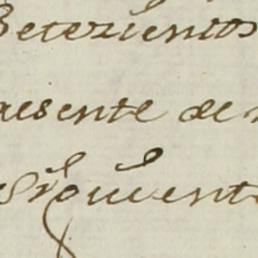 Setezientos
aesente de
Siguiente